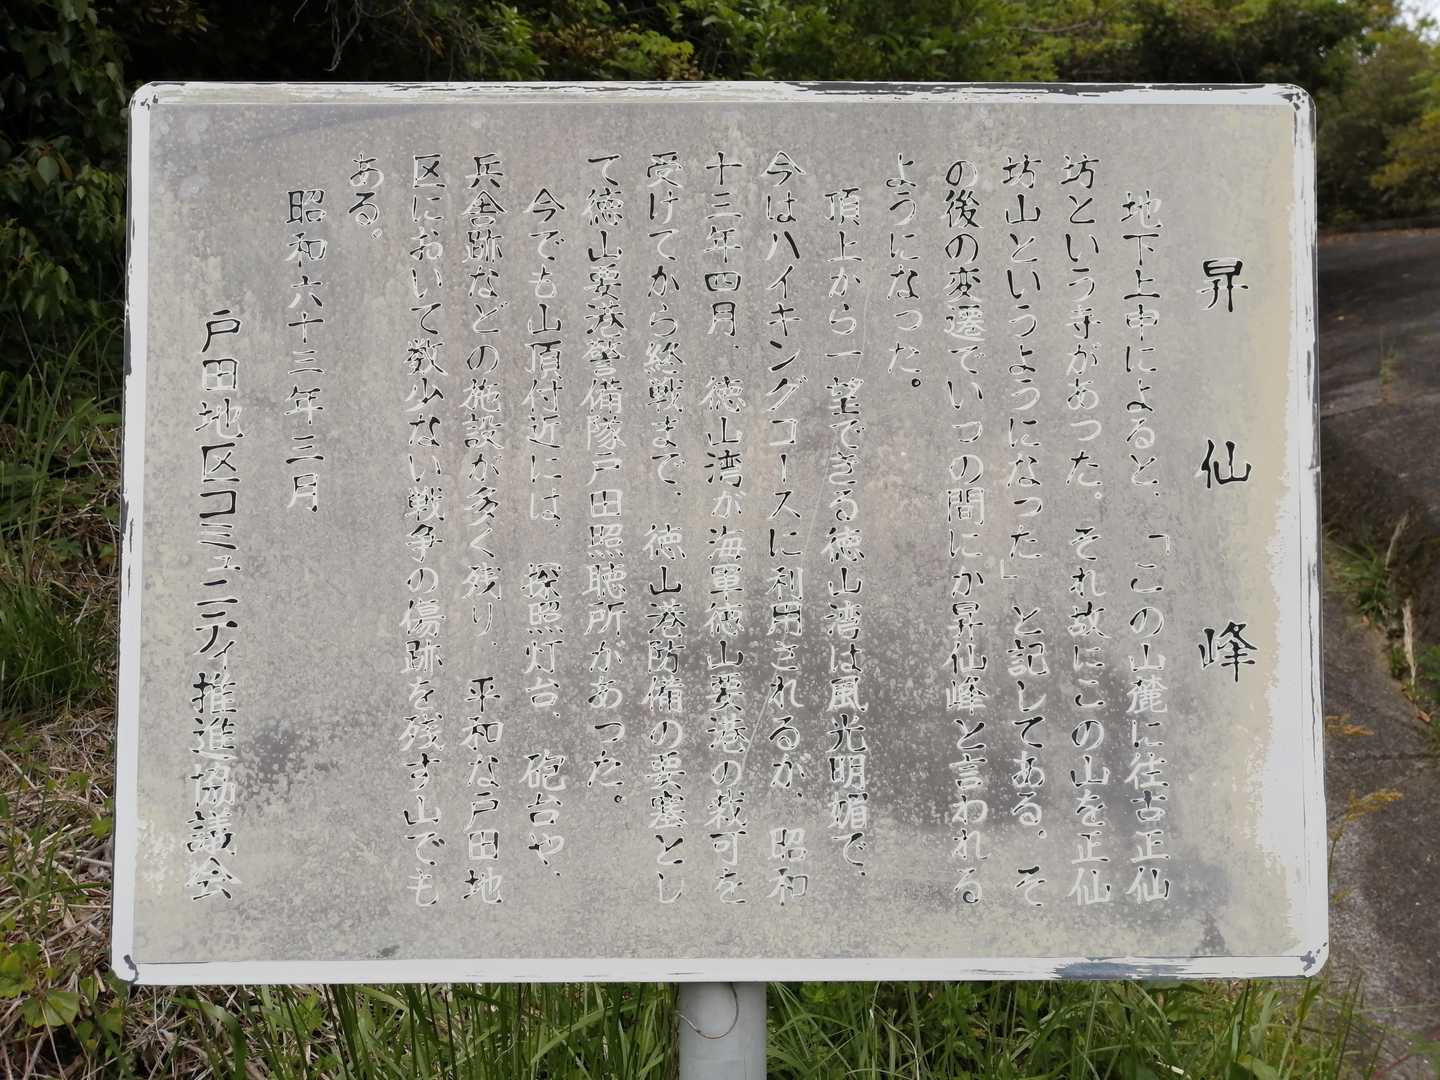 昇仙峰
地下上申によると、「この山麓に往古正仙
坊という寺があった。それ故にこの山を正仙
坊山というようになった」と記してある。そ
の後の変遷でいつの間にか昇仙峰と言われる
ようになった。
頂上から一望できる徳山湾は風光明媚で、
今はハイキングコースに利用されるが、昭和
十三年四月、徳山湾が海軍徳山要港の裁可を
受けてから終戦まで、徳山港防備の要塞とし
て徳山要港警備隊戸田照聴所があった。
今でも山頂付近には、探照灯台、砲台や、
兵舎跡などの施設が多く残り、平和な戸田地
区において数少ない戦争の傷跡を残す山でも
ある。
昭和六十三年三月
戸田地区コミュニティ推進協議会